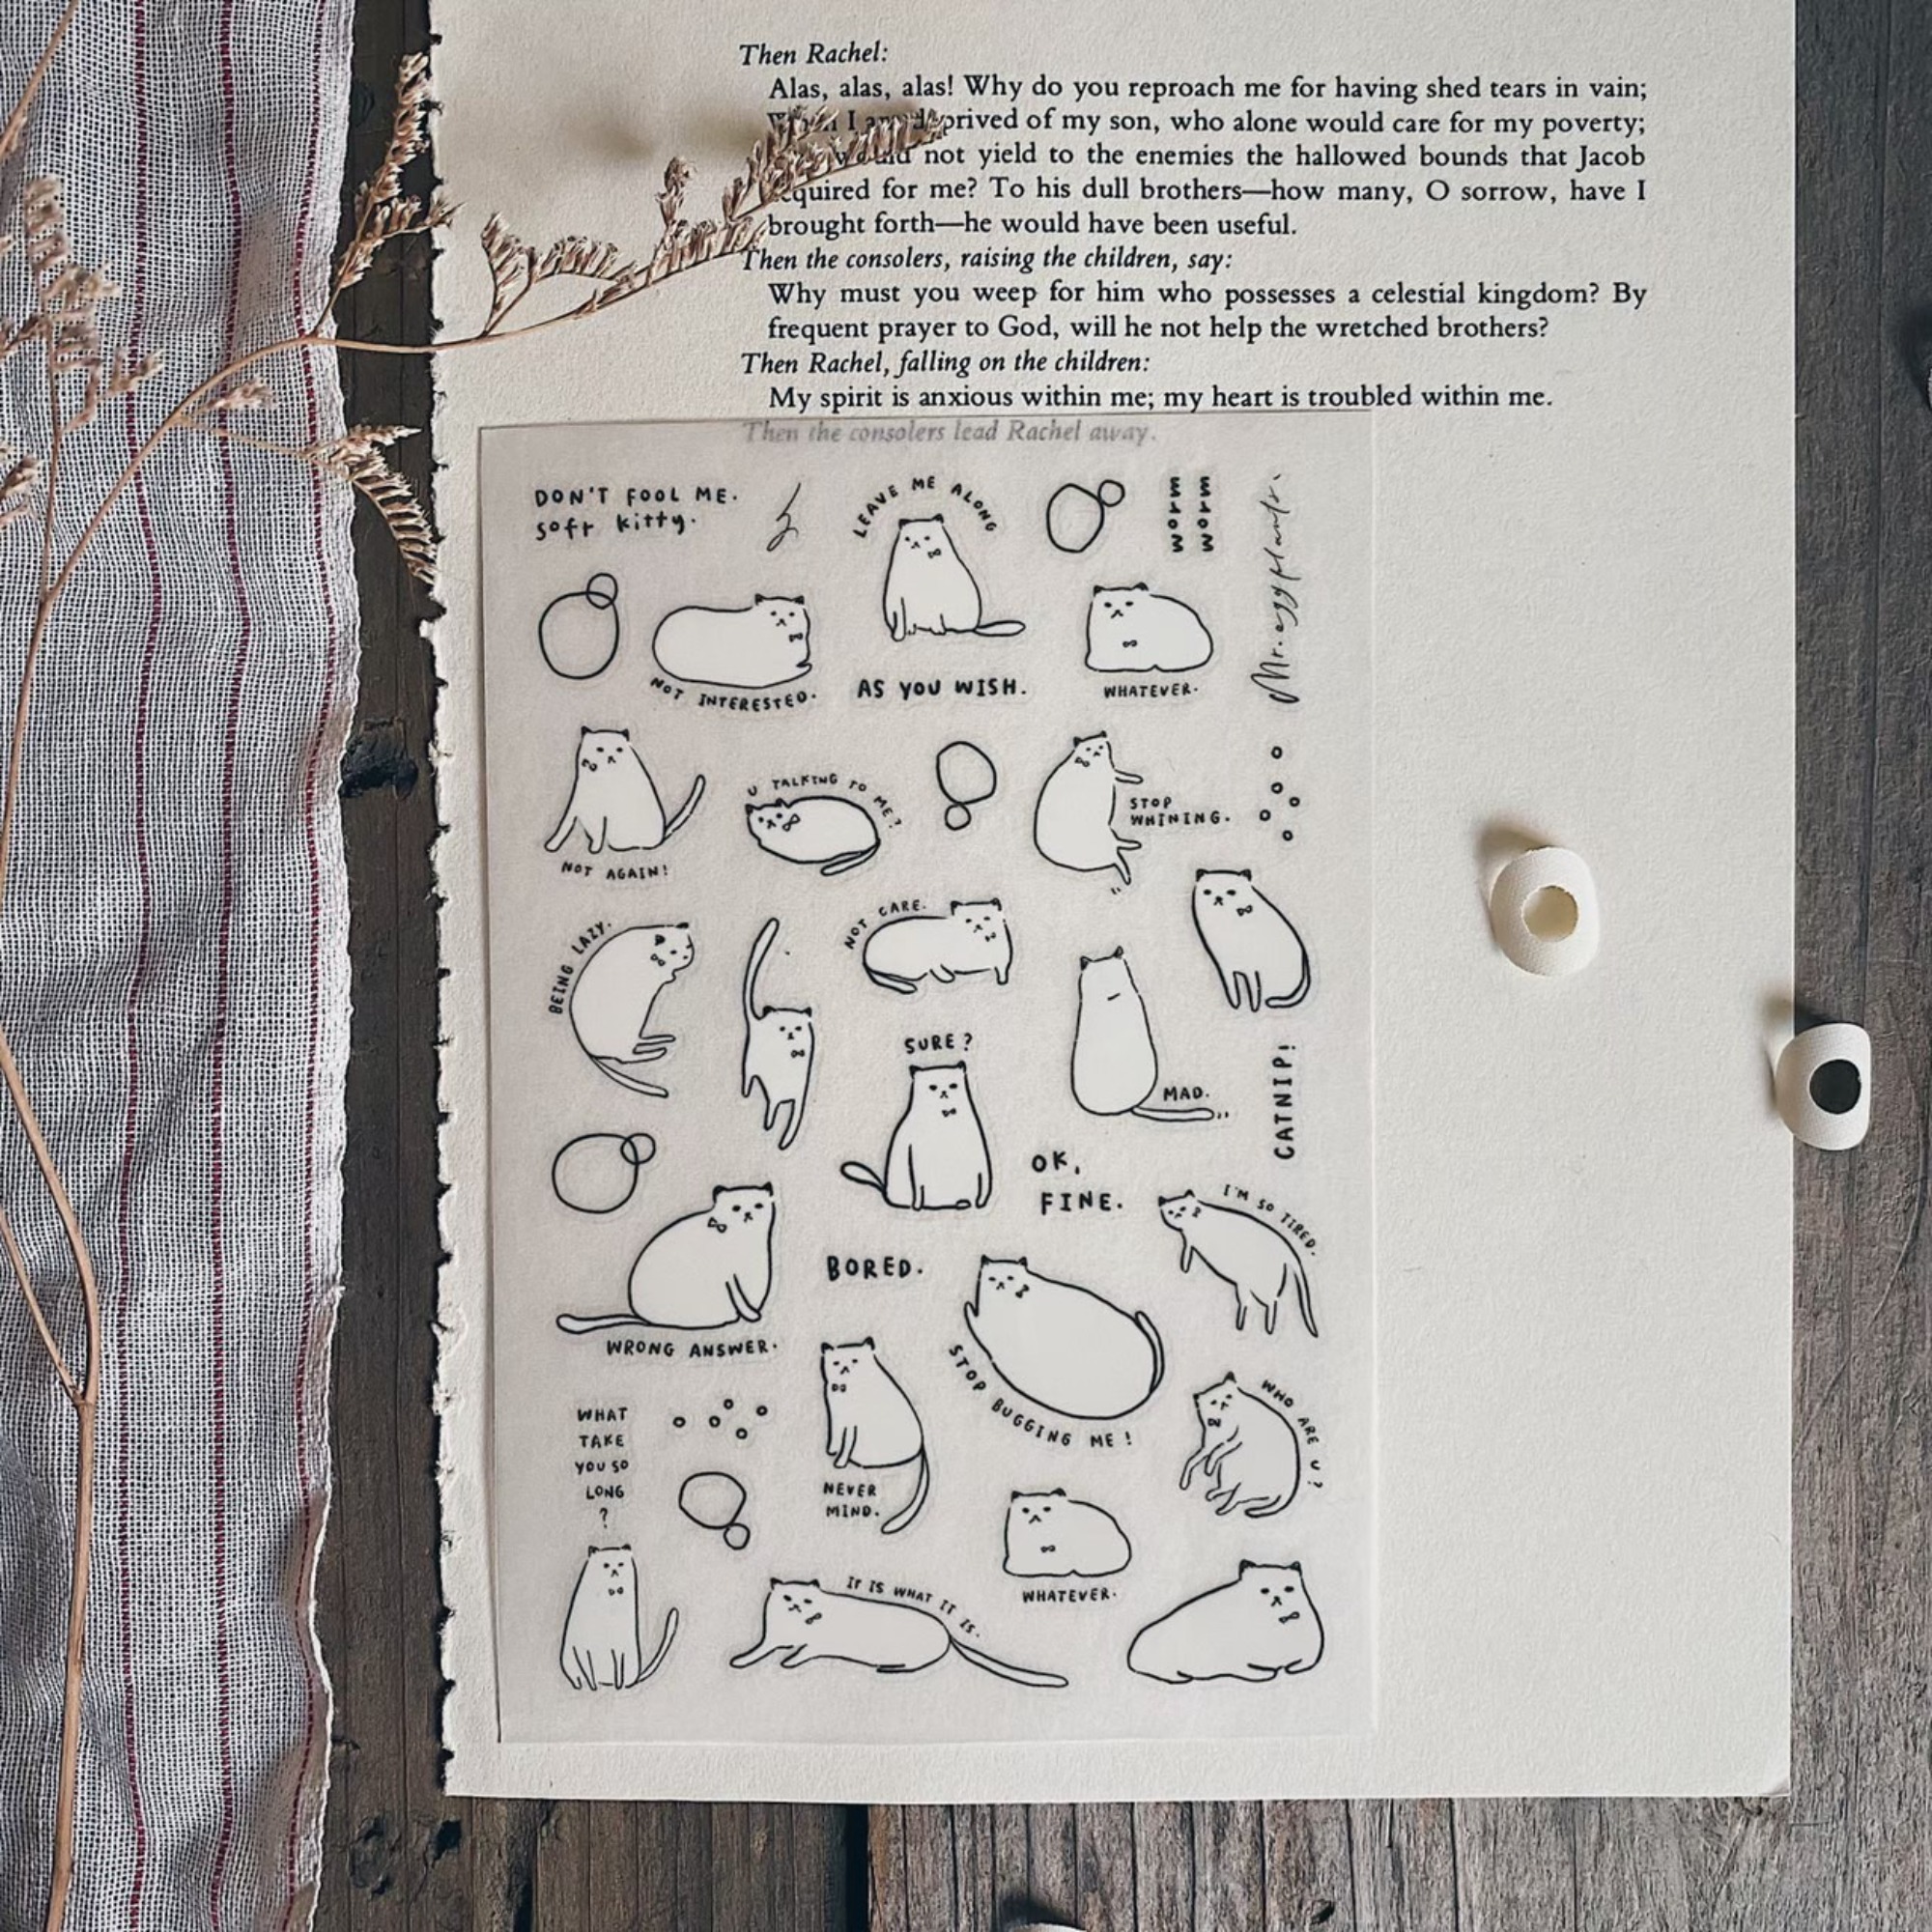 Then Rachel:
Alas, alas, alas! Why do you reproach me for having shed tears in vain;
I deprived of my son, who alone would care for my poverty;
would not yield to the enemies the hallowed bounds that Jacob
for me? To his dull brothers—how many, O sorrow, have I
brought forth—he would have been useful.
Then the consolers, raising the children, say:
Why must you weep for him who possesses a celestial kingdom? By
frequent prayer to God, will he not help the wretched brothers?
Then Rachel, falling on the children:
My spirit is anxious within me; my heart is troubled within me.
Then the consolers lead Rachel away.
DON'T FOOL ME.
soft kitty.
LEAVE ME ALONG
Mr. eggplants.
NOT INTERESTED.
AS YOU WISH.
WHATEVER.
NOT AGAIN!
U TALKING TO ME?
STOP
WHINING.
BEING LAZY.
NOT CARE.
SURE?
MAD.
CATNIP!
OK,
FINE.
I'M SO TIRED.
BORED.
WRONG ANSWER.
STOP BUGGING ME!
WHO ARE U?
WHAT
TAKE
YOU SO
LONG
?
NEVER
MIND.
WHATEVER.
IT IS WHAT IT IS.